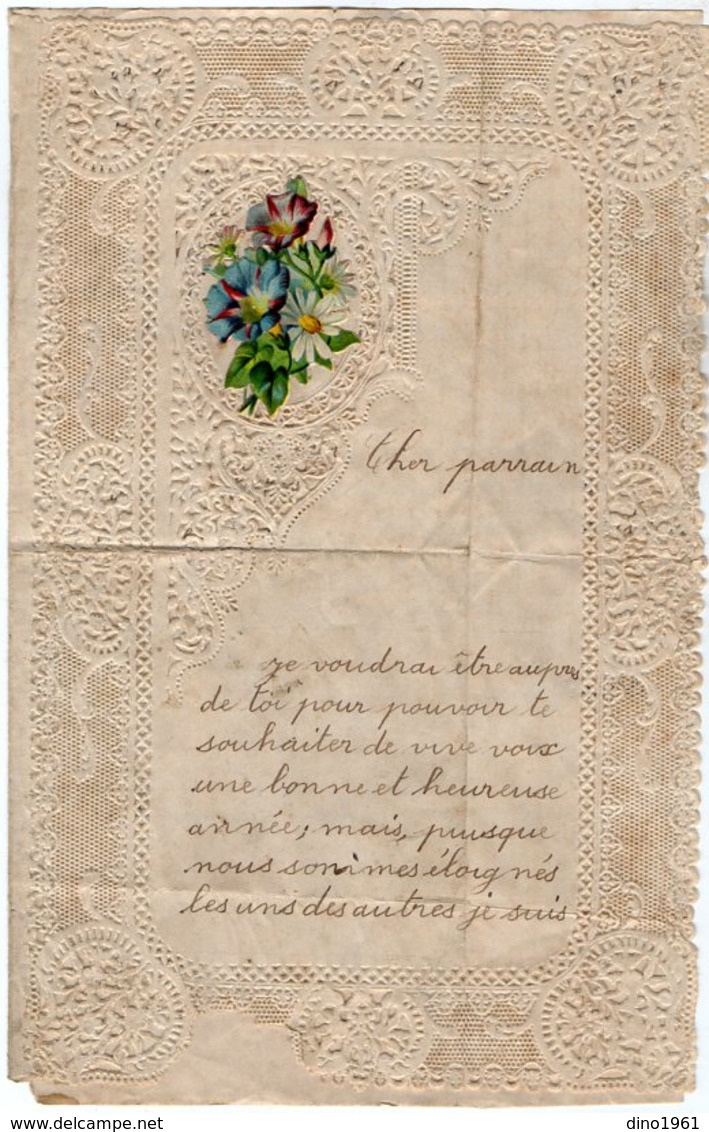 Cher parrain
Je voudrai être auprès
de toi pour pouvoir te
souhaiter de vive voix
une bonne et heureuse
année; mais, puisque
nous sommes éloignés
les uns des autres je suis
dino1961